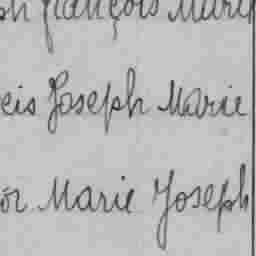 ph françois Marie
cis Joseph Marie
or Marie Joseph